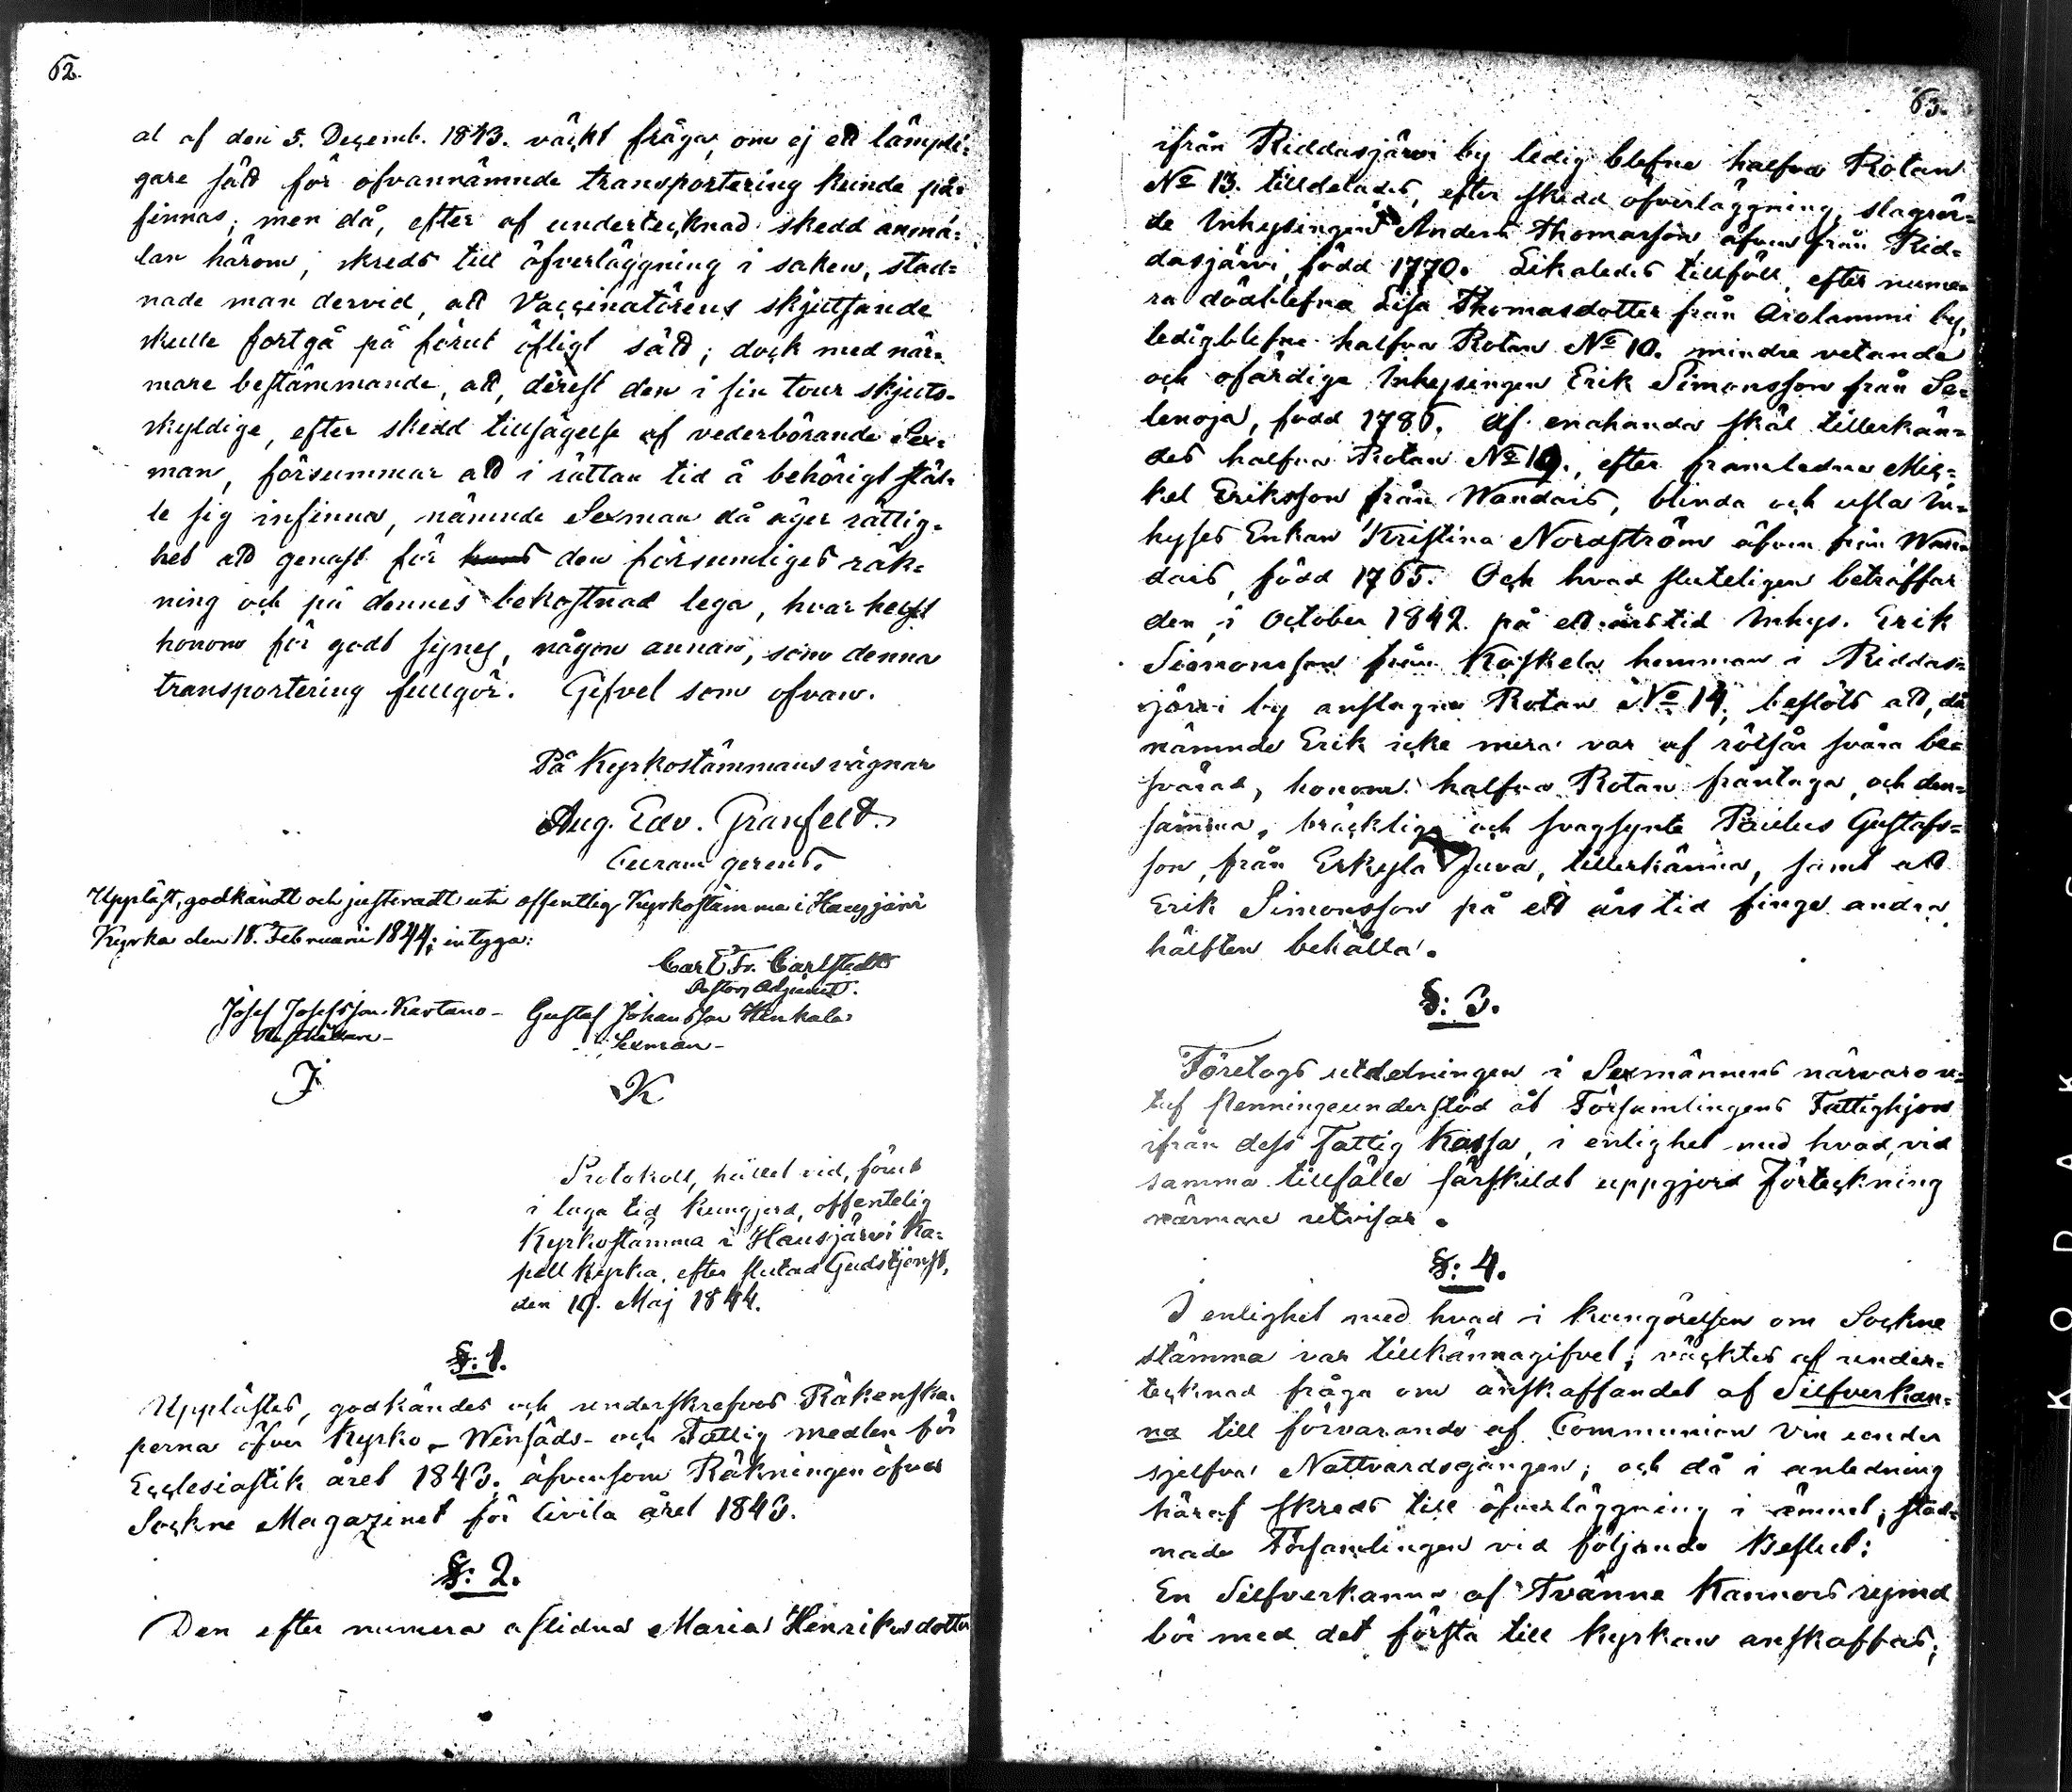 62.
at af den 5. Decemb. 1843. väckt fråga, om ej ett lämpli=
gare sätt för ofvannämnde transportering kunde på=
finnas; men då, efter af undertecknad skedd anmä=
lan härom, skreds till öfverläggning i saken, stad=
nade man dervid, att Vaccinatörens skjutsande
skulle fortgå på förut öfligt sätt; dock med när=
mare bestämmande, att, derest den i sin tour skjuts=
skyldige, efter skedd tillsägelse af vederbörande Sex=
man, försummar att i rättan tid å behörigt stäl=
le sig infinna, nämnde Sexman då äger rättig=
het att genast för hans den försumliges räk=
ning och på dennes bekostnad lega, hvar helst
honom för godt synes, någon annan, som denna
transportering fullgör. Gifvet som ofvan.
På Kyrkostämmans vägnar
Aug. Edv. Granfelt.
Curam gerens.
Uppläst, godkändt och justeradt uti offentlig Kyrkostämma i Hausjärvi
Kyrka den 18. Februarii 1844; intyga:
Carl Fr. Carlstedt
Pastors Adjunct.
Josef Josefsson Kartano - Gustaf Johansson Hinkala
Rusthållare - Sexman -
J K
Protokoll, hållet vid, förut
i laga tid kungjord, offentelig
Kyrkostämma i Hausjärvi Ka=
pell kyrka, efter slutad Gudstjenst,
den 19. Maj 1844.
§: 1.
Upplästes, godkändes och underskrefvos Räkenska=
perna öfver Kyrko- Winsäds- och Fattig medlen för
Ecclesiastik året 1843. äfvensom Räkningen öfver
Sockne Magazinet för Civila året 1843.
§: 2.
Den efter numera aflidna Maria Henriksdotter
63.
ifrån Riddasjärvi by ledig blefne halfva Rotan
No 13. tilldelades, efter skedd öfverläggning, slagrör=
de Inhysingen Anders Thomasson äfven från Rid=
dasjärvi, född 1770. Likaledes tillföll, efter nume=
ra dödblefna Lisa Thomasdotter från Arolammi by,
ledigblefne halfva Rotan No 10. mindre vetande
och ofärdige Inhysingen Erik Simonsson från Se=
lenoja, född 1786. Af enahanda skäl tillerkän=
des halfva Rotan No 19., efter framledne Mic=
kel Eriksson från Wandais, blinda och usla In=
hyses Enkan Kristina Nordström äfven från Wan=
dais, född 1765. Och hvad sluteligen beträffar
den, i October 1842 på ett års tid Inhys. Erik
Simonsson från Koskela hemman i Riddas=
järvi by anslagna Rotan No 14, beslöts att, då
nämnde Erik icke mera var af rötsår svåra be=
svärad, honom halfva Rotan fråntaga, och den=
samma, bräcklige och svagsynte Paulus Gustafs=
son, från Erkylä Juva, tillerkänna, samt att
Erik Simonsson på ett års tid finge andra
hälften behålla.
§: 3.
Företogs utdelningen i Sexmännens närvaro u=
taf penningeunderstöd åt Församlingens Fattighjon
ifrån dess Fattig Kassa, i enlighet med hvad, vid
samma tillfälle särskildt uppgjord Förteckning
närmare utvisar.
§: 4.
I enlighet med hvad i kungörelsen om Sockne
stämma var tillkännagifvet; väcktes af under=
tecknad fråga om anskaffandet af Silfverkan=
na till förvarande af Communion Vin under
sjelfva Nattvardsgången; och då i anledning
häraf skreds till öfverläggning i ämnet; stad=
nade Församlingen vid följande Beslut:
En Silfverkanna af Tvänne Kannors rymd
bör med det första till kyrkan anskaffas;
KODAK